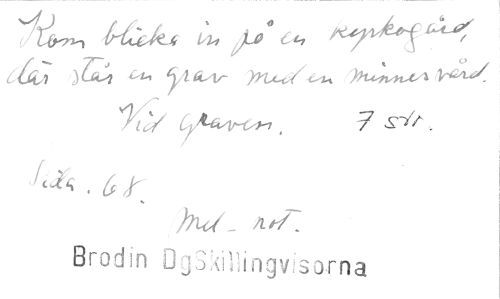 Kom blicka in på en kyrkogård,
där står en grav med en minnesvård.
Vid graven. 7 str.
Sida. 68.
Mel - not.
Brodin DgSkillingvisorna